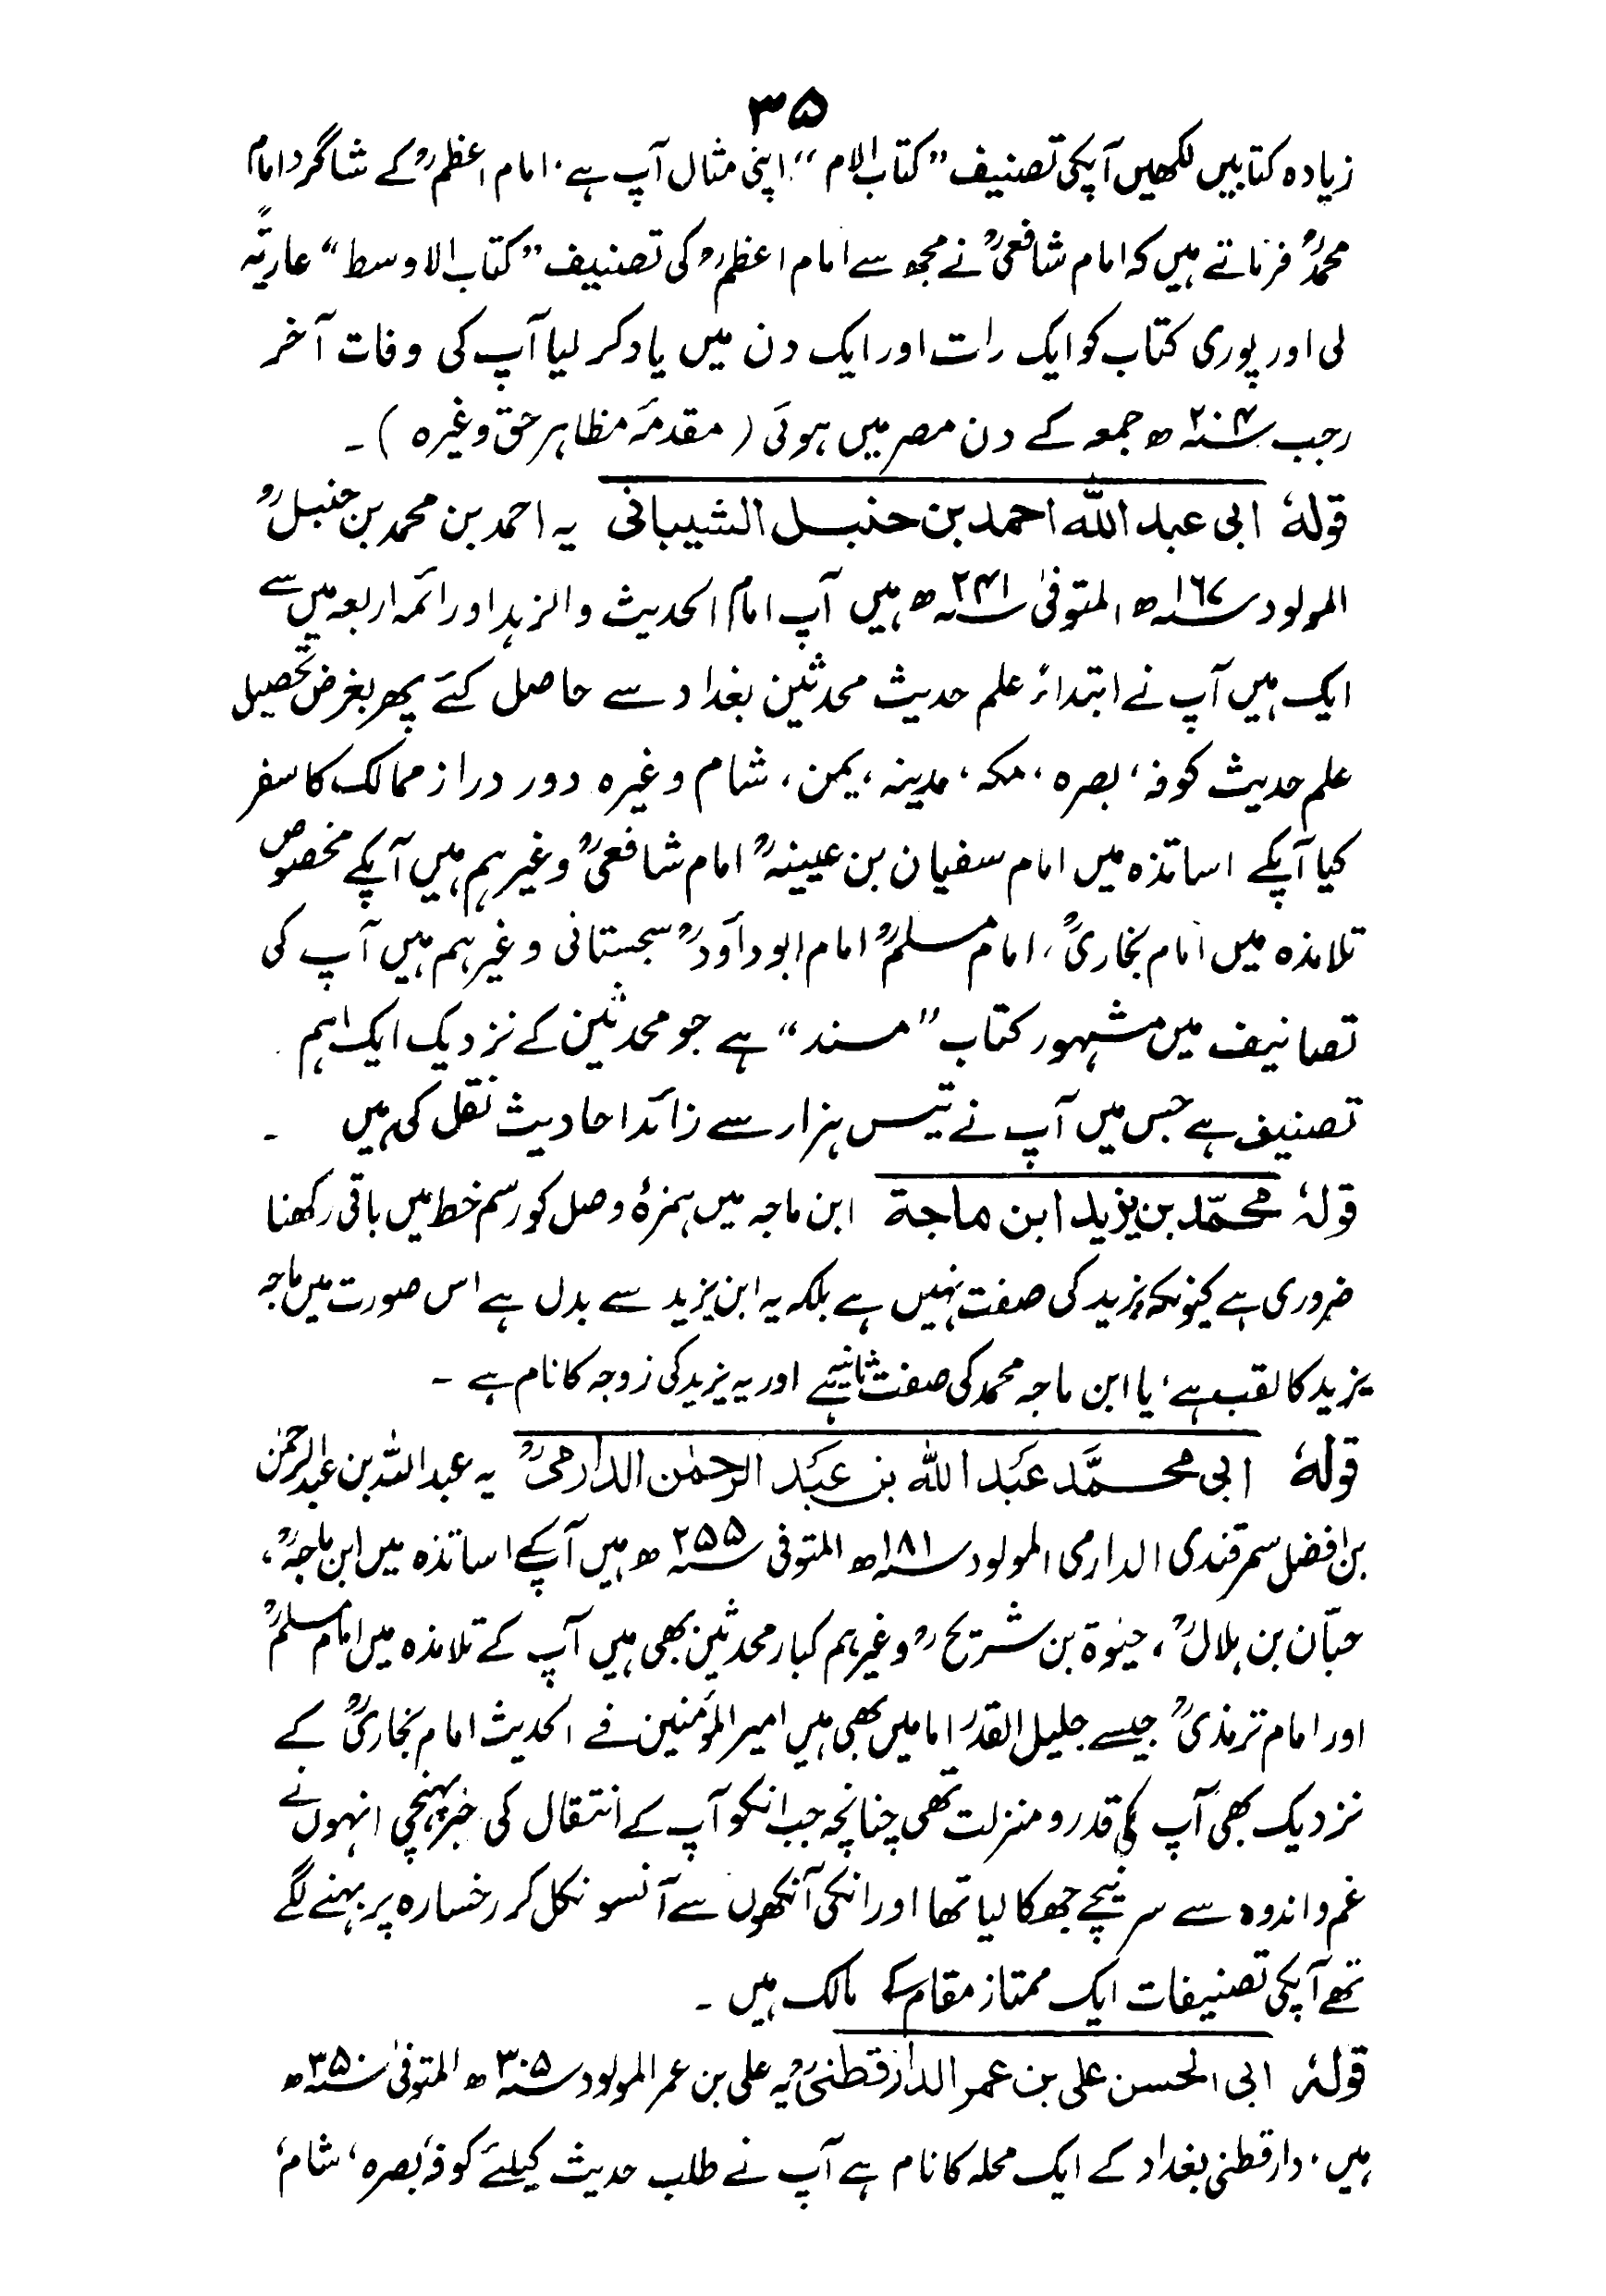 ۳۵
زیادہ کتابیں لکھیں آپکی تصنیف ”کتاب الام“ اپنی مثال آپ ہے، امام اعظمؒ کے شاگرد امام
محمدؒ فرماتے ہیں کہ امام شافعیؒ نے مجھ سے امام اعظمؒ کی تصنیف ”کتاب الاوسط“ عاریۃً
لی اور پوری کتاب کو ایک رات اور ایک دن میں یاد کر لیا آپ کی وفات آخر
رجب ۲۰۴ھ جمعہ کے دن مصر میں ہوئی (مقدمۂ مظاہر حق وغیرہ)۔
قولہٗ ابی عبد اللہ احمد بن حنبل الشیبانی یہ احمد بن محمد بن حنبلؒ
المولود ۱۶۷ھ المتوفیٰ ۲۴۱ھ ہیں آپ امام الحدیث والزہد اور ائمہ اربعہ میں سے
ایک ہیں آپ نے ابتداءً علم حدیث محدثین بغداد سے حاصل کئے پھر بغرض تحصیل
علم حدیث کوفہ، بصرہ، مکہ، مدینہ، یمن، شام وغیرہ دور دراز ممالک کا سفر
کیا آپکے اساتذہ میں امام سفیان بن عیینہؒ امام شافعیؒ وغیرہم ہیں آپکے مخصوص
تلامذہ میں امام بخاریؒ، امام مسلمؒ امام ابوداؤدؒ سجستانی وغیرہم ہیں آپ کی
تصانیف میں مشہور کتاب ”مسند“ ہے جو محدثین کے نزدیک ایک اہم
تصنیف ہے جس میں آپ نے تیس ہزار سے زائد احادیث نقل کی ہیں ۔
قولہٗ محمّد بن یزید ابن ماجة ابن ماجہ میں ہمزۂ وصل کو رسم خط میں باقی رکھنا
ضروری ہے کیونکہ یزید کی صفت نہیں ہے بلکہ یہ ابن یزید سے بدل ہے اس صورت میں ماجہ
یزید کا لقب ہے، یا ابن ماجہ محمد کی صفت ثانیہ ہے اور یہ یزید کی زوجہ کا نام ہے ۔
قولہٗ ابی محمَّد عَبد اللہ بن عبَد الرحمٰن الدارمیؒ یہ عبد اللہ بن عبد الرحمٰن
بن افضل سمرقندی الدارمی المولود ۱۸۱ھ المتوفی ۲۵۵ھ ہیں آپکے اساتذہ میں ابن ماجہؒ،
حبّان بن ہلالؒ، حیٰوة بن شریحؒ وغیرہم کبار محدثین بھی ہیں آپ کے تلامذہ میں امام مسلمؒ
اور امام ترمذیؒ جیسے جلیل القدر امامیں بھی ہیں امیر المؤمنین فے الحدیث امام بخاریؒ کے
نزدیک بھی آپ کی قدر و منزلت تھی چنانچہ جب انکو آپ کے انتقال کی خبر پہنچی انہوں نے
غم و اندوہ سے سر نیچے جھکا لیا تھا اور انکی آنکھوں سے آنسو نکل کر رخسارہ پر بہنے لگے
تھے آپکی تصنیفات ایک ممتاز مقام کے مالک ہیں ۔
قولہٗ ابی الحسن علی بن عمر الدارقطنیؒ یہ علی بن عمر المولود ۳۰۵ھ المتوفیٰ ۳۵۰ھ
ہیں، دارقطنی بغداد کے ایک محلہ کا نام ہے آپ نے طلب حدیث کیلئے کوفہ، بصرہ، شام،